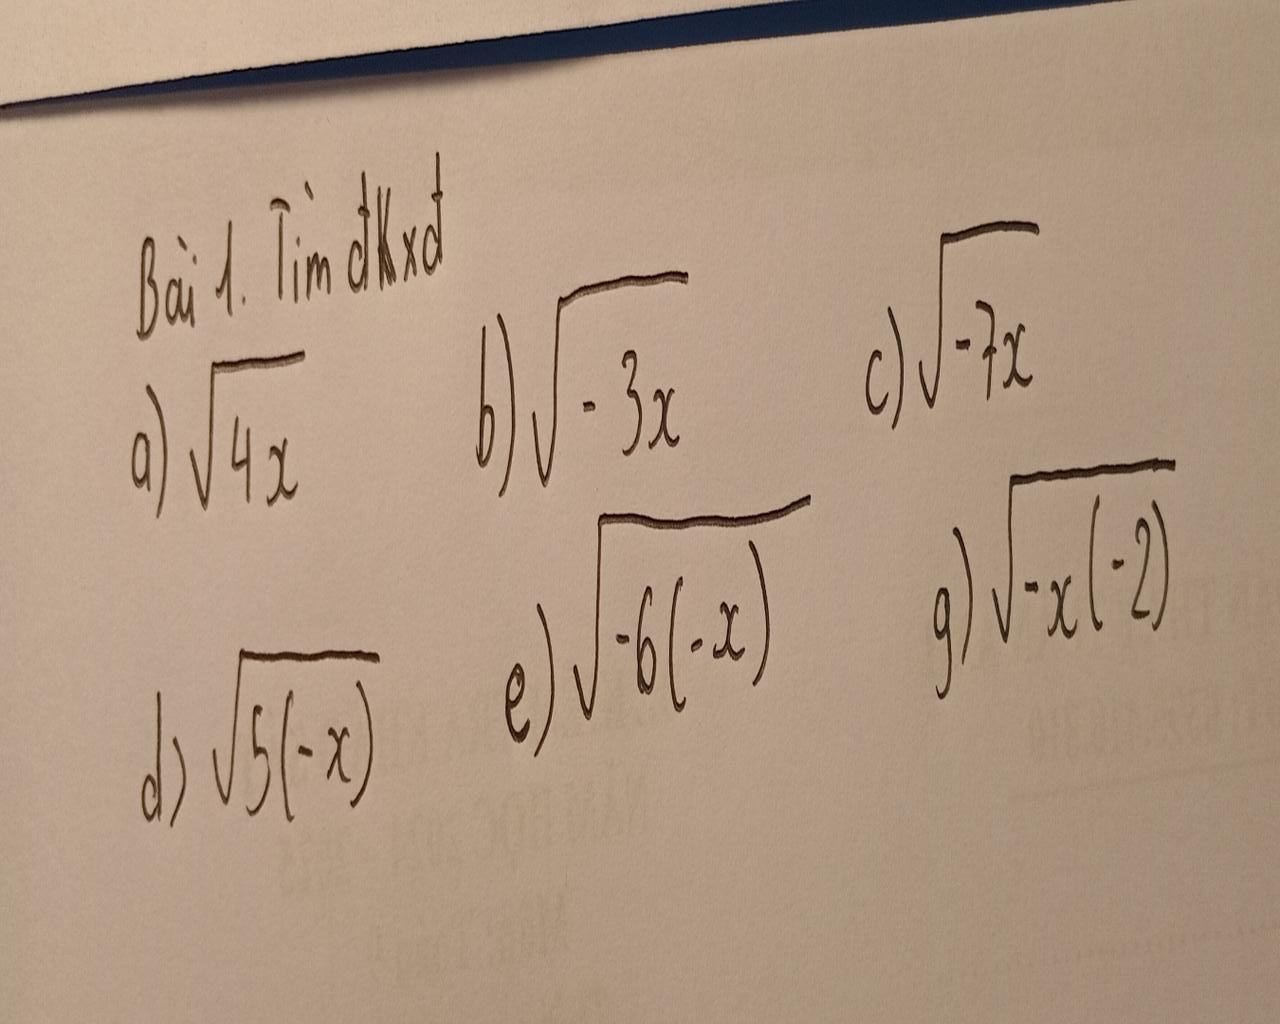 Bài 1. Tìm đkxđ
a) √4x b) √-3x c) √-7x
d) √5(-x) e) √-6(-x) g) √-x(-2)